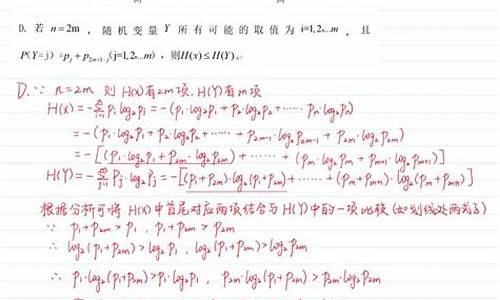 D. 若 n=2m ， 随机变量 Y 所有可能的取值为 i=1,2,..m ， 且
P(Y=j) =p_j+p_{2m+1-j}(j=1,2,..m) ， 则H(x)≤H(Y)。
D. ∵ n=2m 则 H(x)有2m项, H(Y)有m项
H(x)=-Σp_i log₂p_i = -(p₁·log₂p₁+P₂·log₂P₂+……Pₙ·log₂Pₙ)
= -(P₁·log₂P₁+P₂·log₂P₂+……+P_{2m-1}·log₂P_{2m-1}+P_{2m}log₂P_{2m})
= -[(P₁·log₂P₁+P_{2m}·log₂P_{2m})+……+(P_m·log₂P_m+P_{m+1}·log₂P_{m+1})]
H(Y)=-ΣP_j·log₂P_j=-[(P₁+P_{2m})·log₂(P₁+P_{2m})+……+(P_m+P_{m+1})·log₂(P_m+P_{m+1})]
根据分析可将 H(x)中首尾对应两项结合与H(Y)中的一项比较(如划线处两式)
∵ P₁+P_{2m}>P₁ , P₁+P_{2m}>P_{2m}
∴ log₂(P₁+P_{2m})>log₂P₁ , log₂(P₁+P_{2m})>log₂P_{2m}
∴ P₁·log₂(P₁+P_{2m})>P₁·log₂P₁ , P_{2m}·log₂(P₁+P_{2m})>P_{2m}·log₂P_{2m}